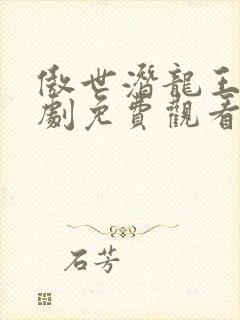 傲世潛龍王
劇免費觀看
石芳